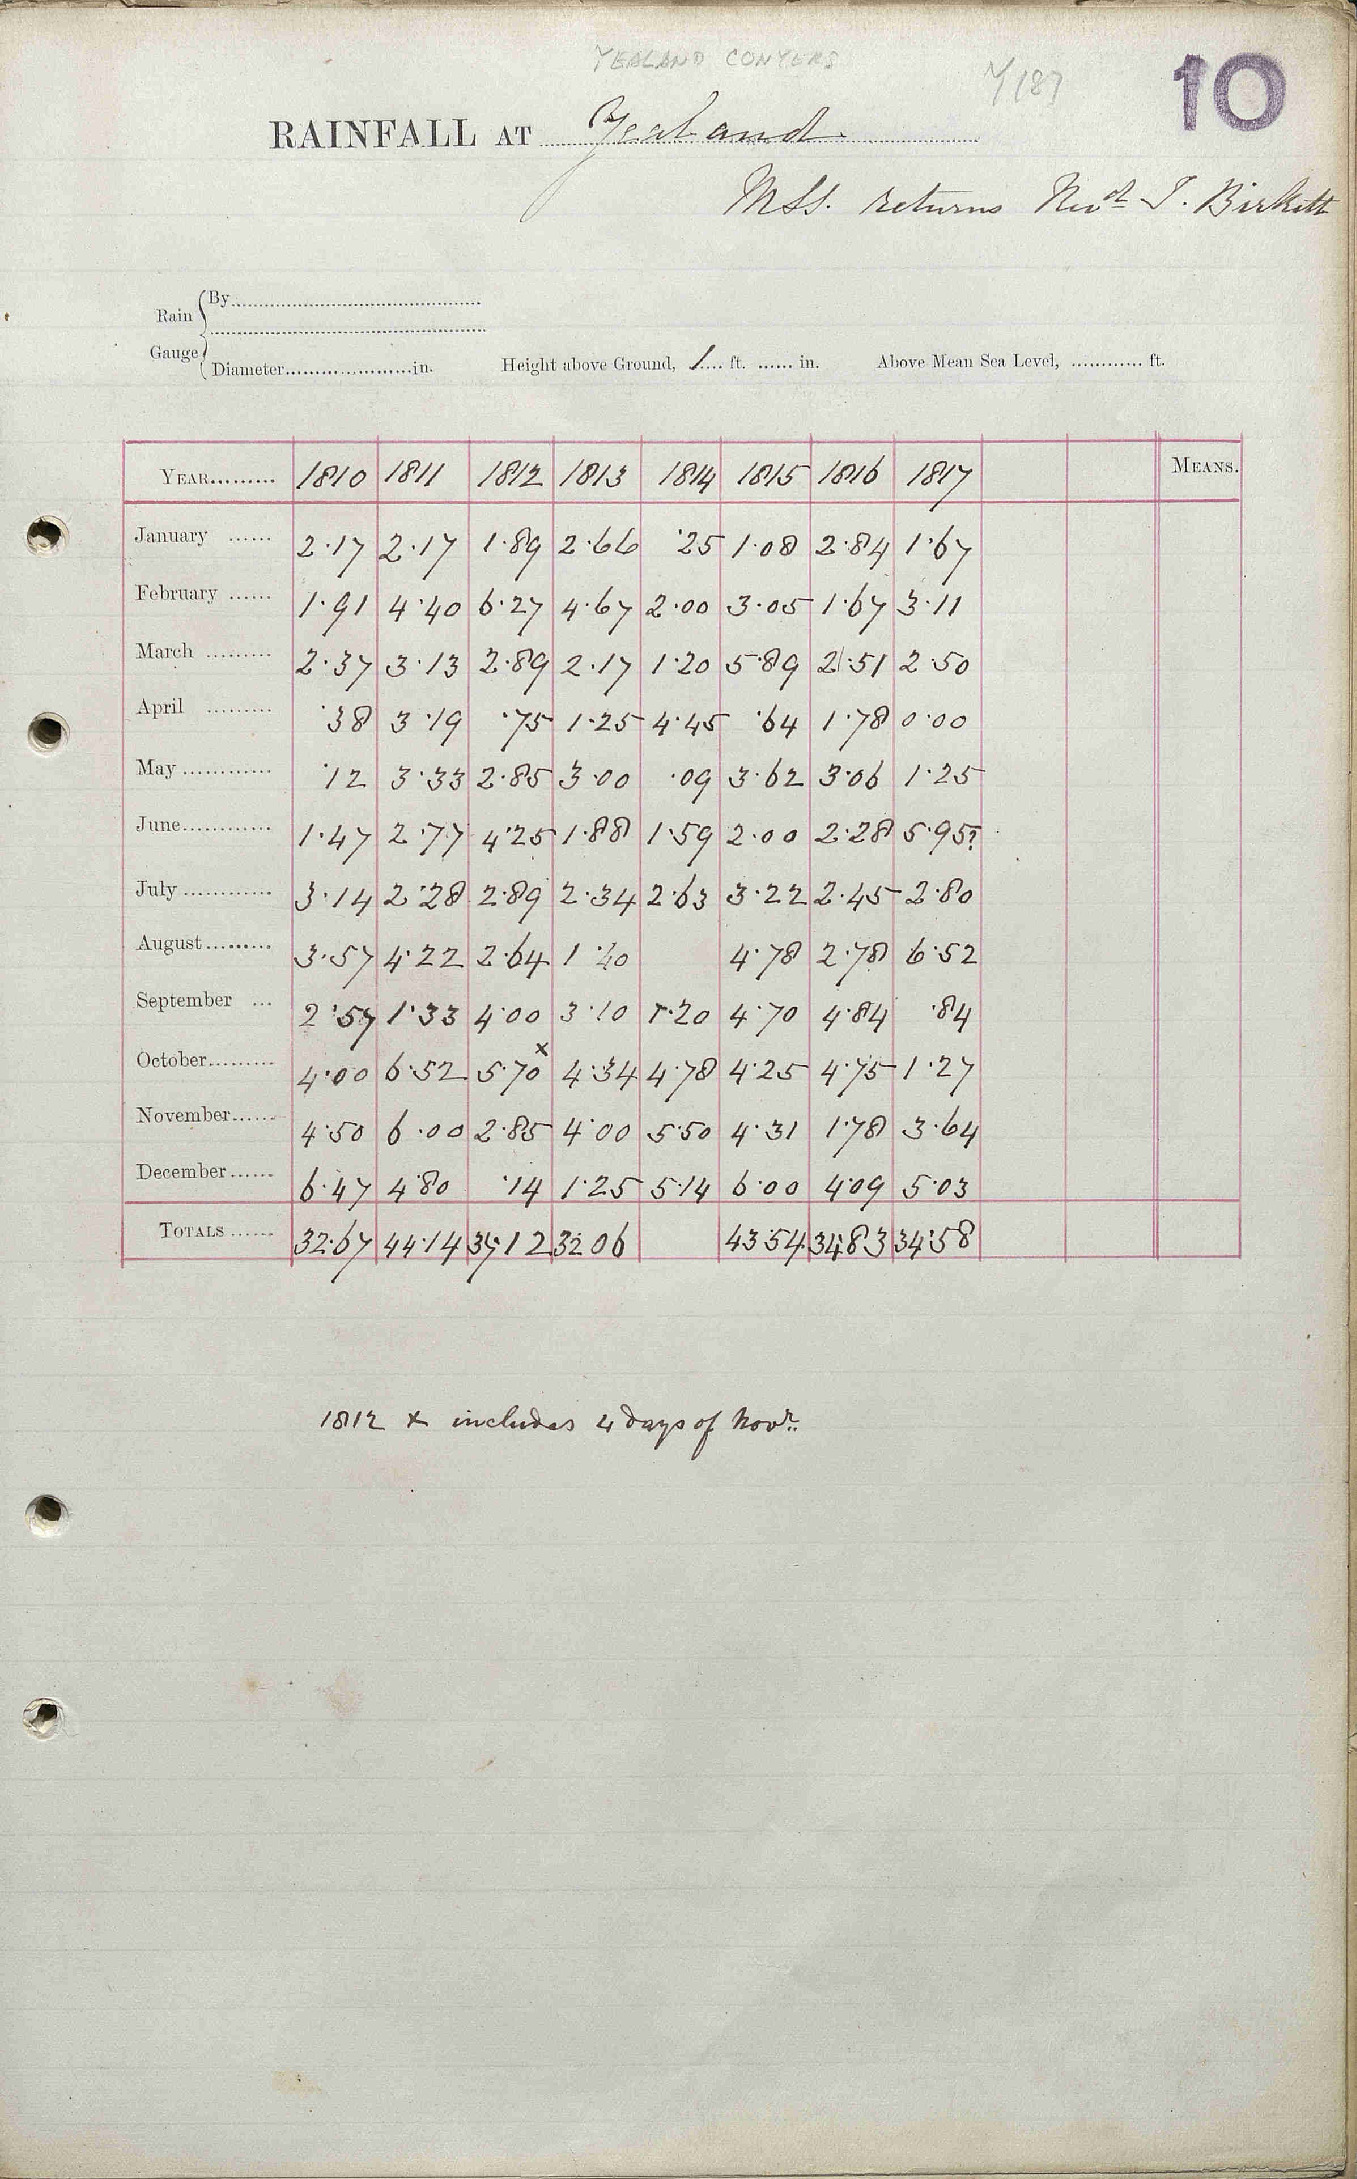 YEALAND CONYERS
10
RAINFALL AT Yealand
MSS. returns Recd. T. Birkett
Rain Gauge
By
Diameter in. Height above Ground, 1 ft. in. Above Mean Sea Level, ft.
YEAR 1810 1811 1812 1813 1814 1815 1816 1817 MEANS.
January 2.17 2.17 1.89 2.66 .25 1.08 2.84 1.67
February 1.91 4.40 6.27 4.67 2.00 3.05 1.67 3.11
March 2.37 3.13 2.89 2.17 1.20 5.89 2.51 2.50
April .38 3.19 .75 1.25 4.45 .64 1.78 0.00
May .12 3.33 2.85 3.00 .09 3.62 3.06 1.25
June 1.47 2.77 4.25 1.88 1.59 2.00 2.28 5.95?
July 3.14 2.28 2.89 2.34 2.63 3.22 2.45 2.80
August 3.57 4.22 2.64 1.40 4.78 2.78 6.52
September 2.57 1.33 4.00 3.10 1.20 4.70 4.84 .84
October 4.00 6.52 5.70 x 4.34 4.78 4.25 4.75 1.27
November 4.50 6.00 2.85 4.00 5.50 4.31 1.78 3.64
December 6.47 4.80 .14 1.25 5.14 6.00 4.09 5.03
TOTALS 32.67 44.14 37.12 32.06 43.54 34.83 34.58
1812 x includes 4 days of Novr.